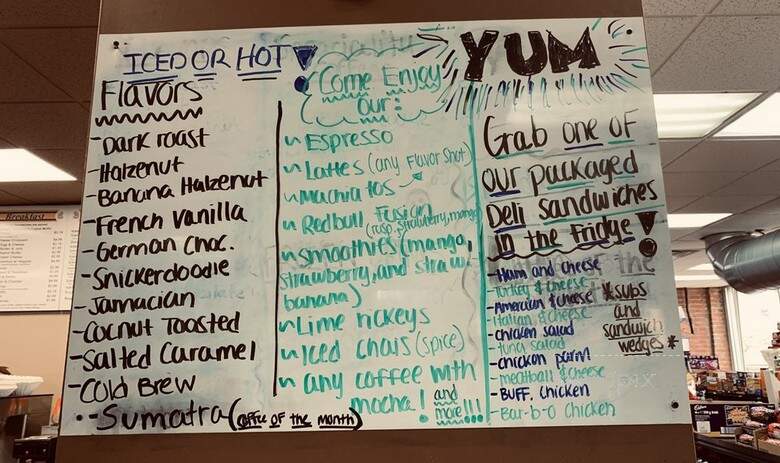 ICED OR HOT
Flavors
-Dark roast
-Halzenut
-Banana Halzenut
-French Vanilla
-German Choc.
-Snickerdoodle
-Jamacian
-Cocnut Toosted
-Salted Caramel
-Cold Brew
-Sumatra (coffee of the month)
Come Enjoy
our:
Espresso
Lattes (any Flavor Shot)
Machiatos
Redbull Fusion
(rasp, strawberry, mango
smoothies (mango,
strawberry, and straw-
banana)
Lime rickeys
Iced chais (spice)
any coffee with
mocha! and
more!!!
YUM
Grab one of
our packaged
Deli sandwiches
in the Fridge!
-Ham and cheese
-Turkey & cheese
-American & cheese
-Italian & cheese
-chicken salad
-tuna salad
-chicken parm
-meatball & cheese
-BUFF. chicken
-Bar-b-Q chicken
*subs
and
sandwich
wedges*
Breakfast